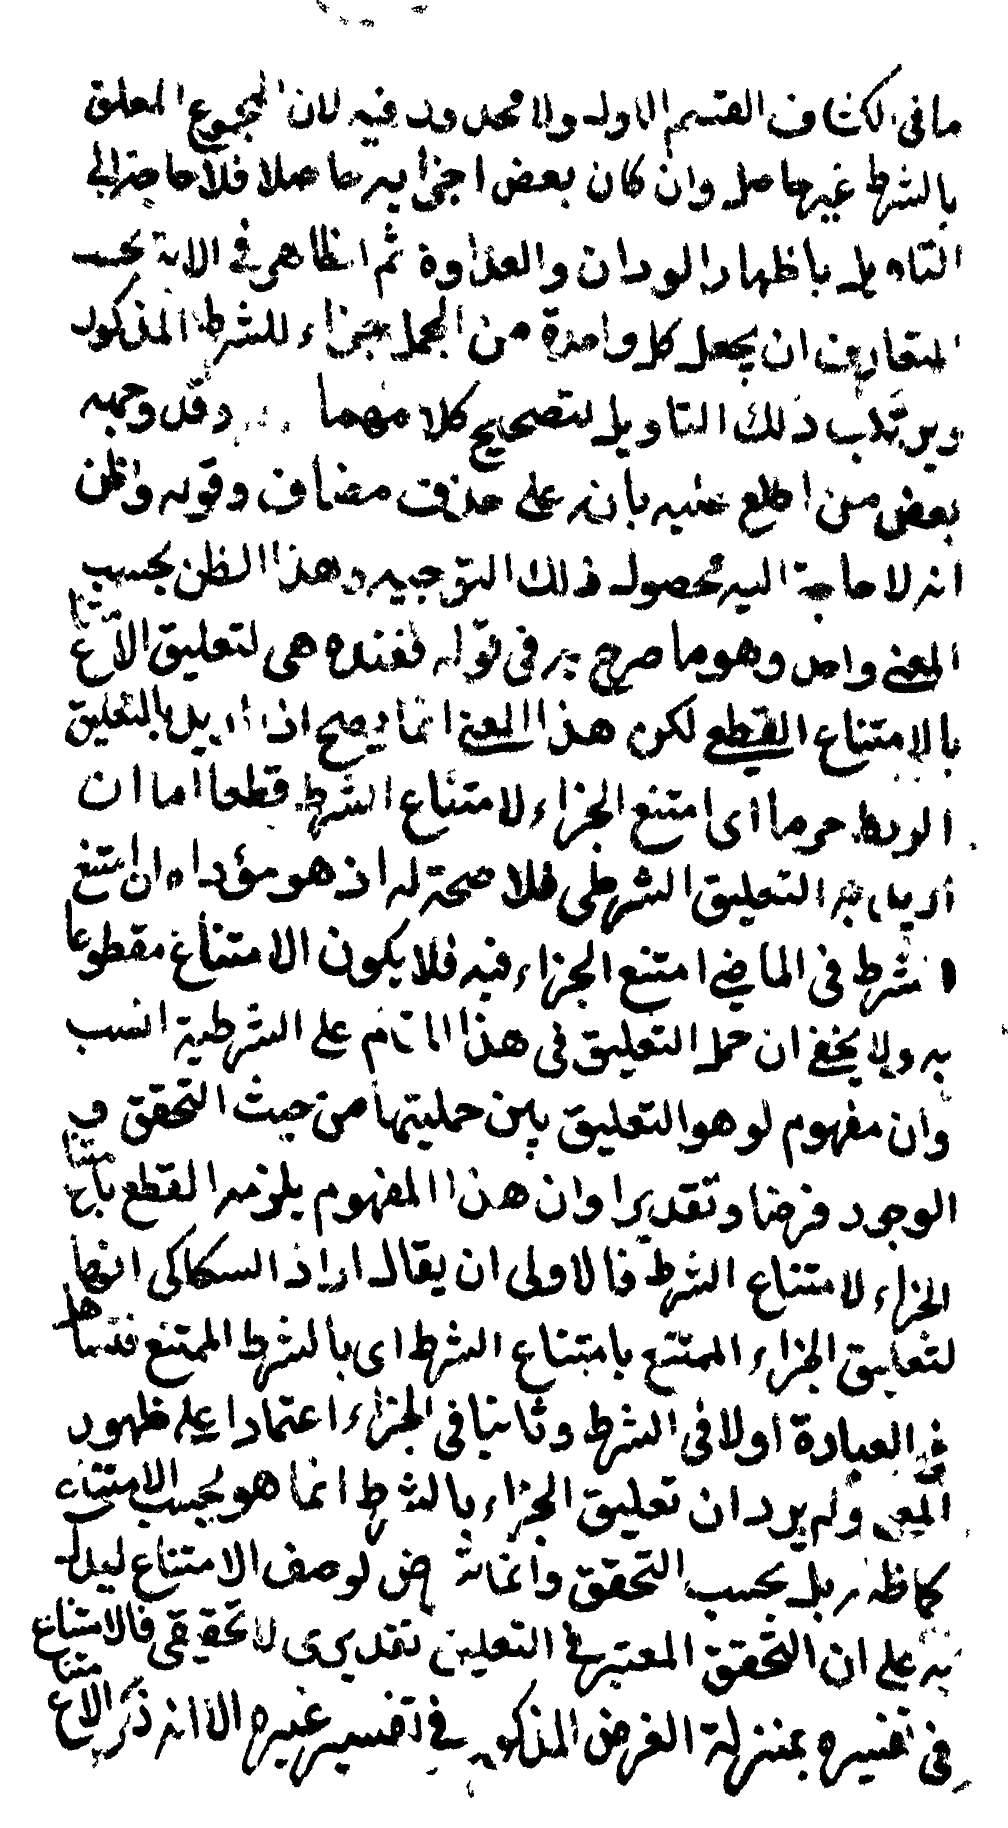 ما في الكشاف القسم الاول ولا محذور فيه لان المجموع المعلق
بالشرط غير حاصل وان كان بعض اجزايه حاصلا فلا حاجة الى
التاويل باظهار الوداد والعداوة ثم الظاهر في الاية بحسب
المتعارف ان يجعل كل واحدة من الجمل جزاء للشرط المذكور
ويرتكب ذلك التاويل لتصحيح كلا منهما وقد وجهه
بعض من اطلع عليه بانه على حذف مضاف وقوته واظن
انه لا حاجة اليه محصول ذلك التوجيه وهذا الظن بحسب
المعنى واحد وهو ما صرح به في قوله فعنده هي لتعليق الامتناع
بالامتناع القطعي لكن هذا المعنى انما يصح اذا اريد بالتعليق
الربط جزما اى امتنع الجزاء لامتناع الشرط قطعا اما ان
اريد به التعليق الشرطى فلا صحة له اذ هو مؤداه ان امتنع
الشرط في الماضي امتنع الجزاء فيه فلا يكون الامتناع مقطوعا
به ولا يخفى ان حمل التعليق في هذا المقام على الشرطية انسب
وان مفهوم لو هو التعليق بين جملتيها من حيث التحقق و
الوجود فرضا وتقديرا وان هذا المفهوم يلزمه القطع بامتناع
الجزاء لامتناع الشرط فالاولى ان يقال اراد السكاكى انها
لتعليق الجزاء الممتنع بامتناع الشرط اى بالشرط الممتنع فتساهل
في العبارة اولا في الشرط وثانيا في الجزاء اعتمادا على ظهور
المعنى ولم يرد ان تعليق الجزاء بالشرط انما هو بحسب الامتناع
كما ظنه بل بحسب التحقق وانما تعرض لوصف الامتناع ليدل
به على ان التحقق المعتبر في التعليق تقديرى لا تحقيقي فالامتناع
في تفسيره بمنزلة الفرض المذكور في تفسير غيره الا انه ذكر الامتناع